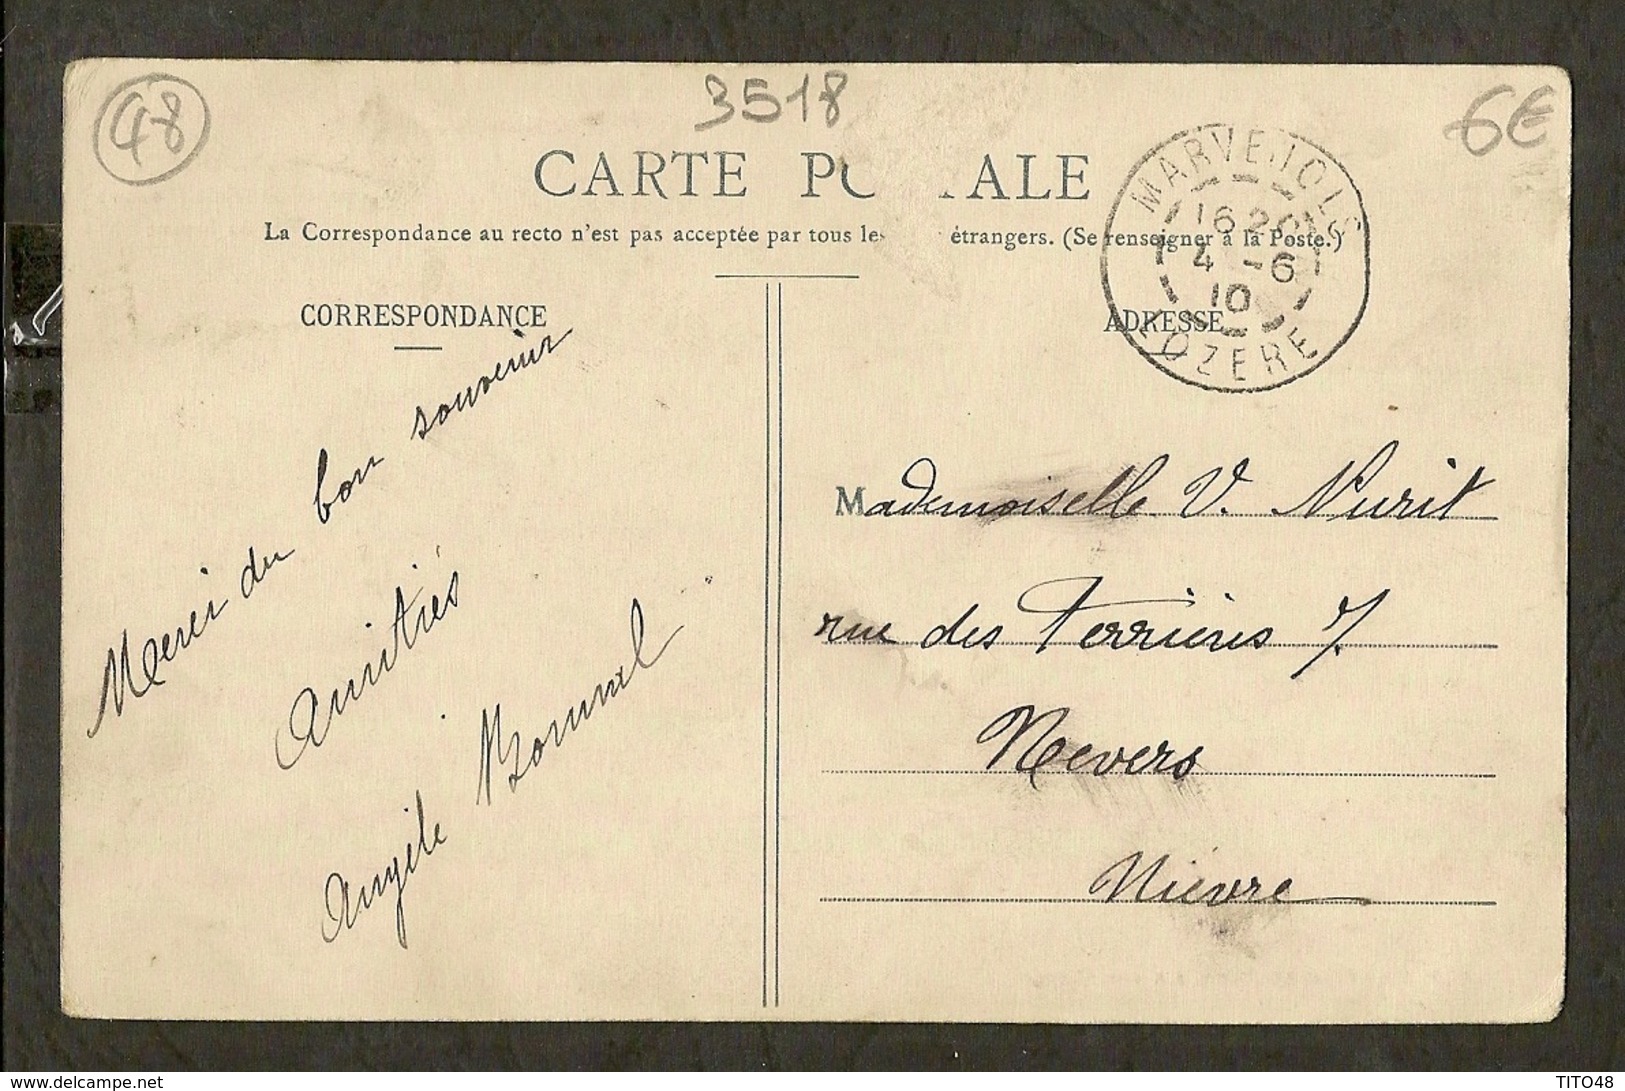 48
3518
6€
CARTE POSTALE
La Correspondance au recto n'est pas acceptée par tous les étrangers. (Se renseigner à la Poste.)
MARVEJOLS
16 20
4 -6
10
LOZERE
CORRESPONDANCE
ADRESSE
Merci du bon souvenir
Amitiés
Angèle Bonnal
Mademoiselle V. Nurit
rue des Ferrières 7.
Nevers
Nièvre
www.delcampe.net
TITO48